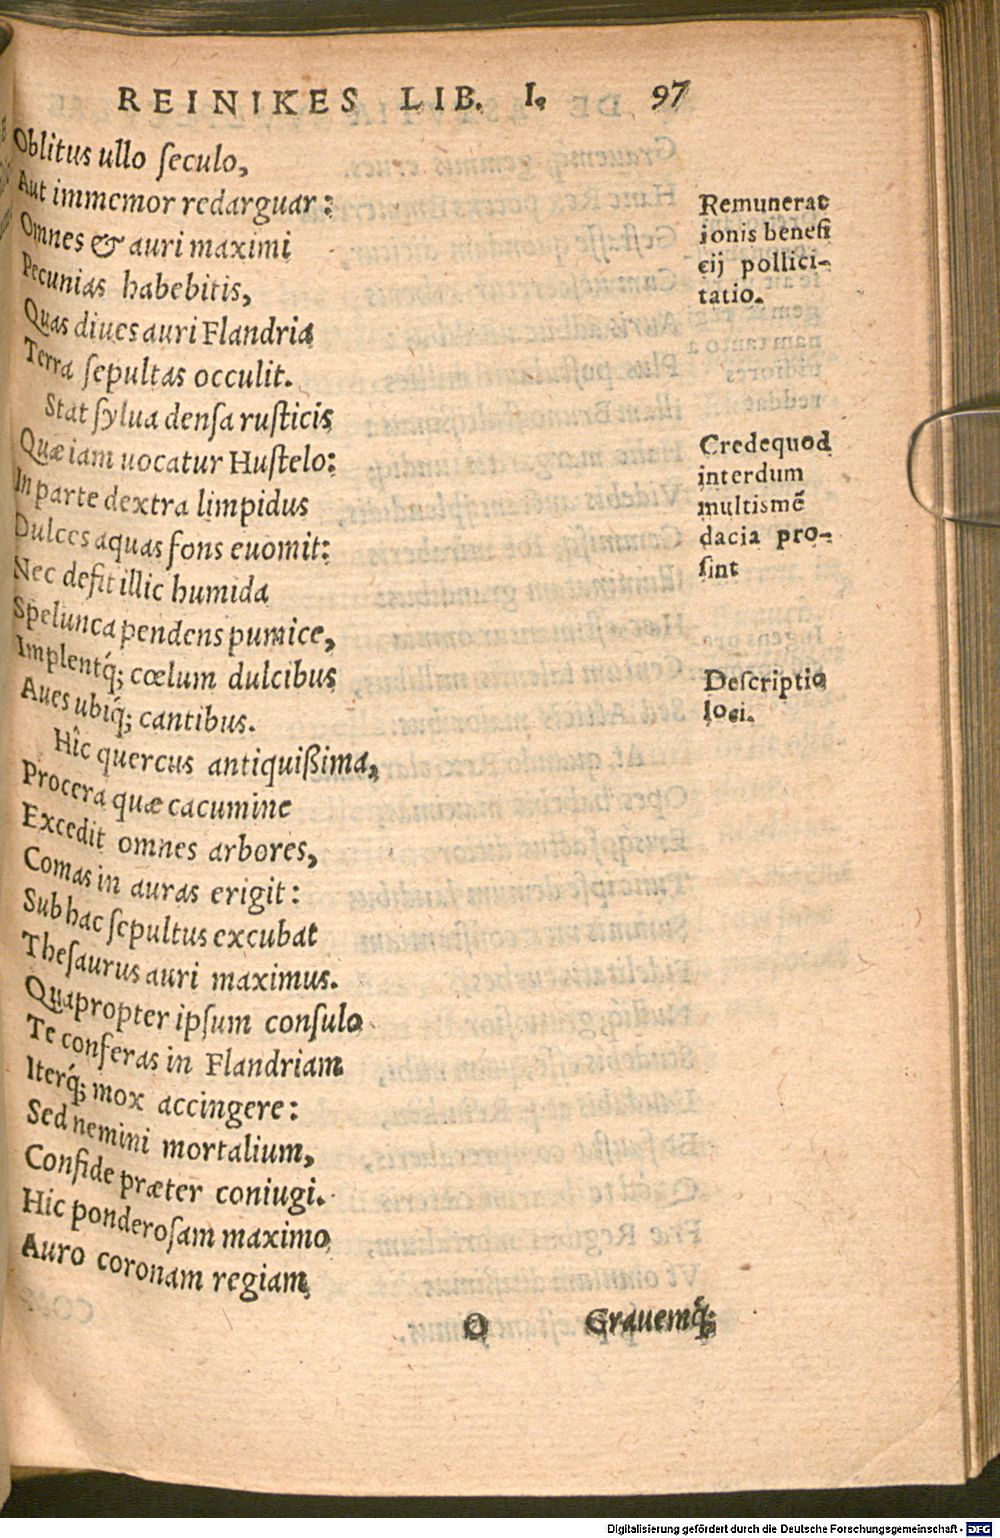 REINIKES LIB. I. 97
Oblitus ullo ſeculo,
Aut immemor redarguar:
Omnes & auri maximi
Pecunias habebitis,
Quas diues auri Flandria
Terra ſepultas occulit.
Stat ſylua denſa ruſticis
Quæ iam uocatur Huſtelo:
In parte dextra limpidus
Dulces aquas fons euomit:
Nec defit illic humida
Spelunca pendens pumice,
Implentq́; cœlum dulcibus
Aues ubiq́; cantibus.
Hîc quercus antiquißima,
Procera quæ cacumine
Excedit omnes arbores,
Comas in auras erigit:
Sub hac ſepultus excubat
Theſaurus auri maximus.
Quapropter ipſum conſulo
Te conferas in Flandriam
Iterq́; mox accingere:
Sed nemini mortalium,
Confide præter coniugi.
Hic ponderoſam maximo
Auro coronam regiam
O Grauemq́;
Remunerat
ionis benefi
cij pollici-
tatio.
Credequod
interdum
multismē
dacia pro-
ſint
Deſcriptio
loci.
Digitalisierung gefördert durch die Deutsche Forschungsgemeinschaft - DFG